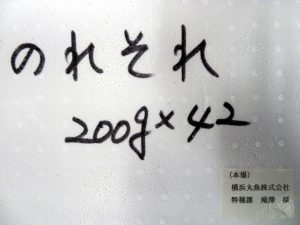 のれそれ
200g×42
(本場)
横浜丸魚株式会社
特種課 滝澤 様